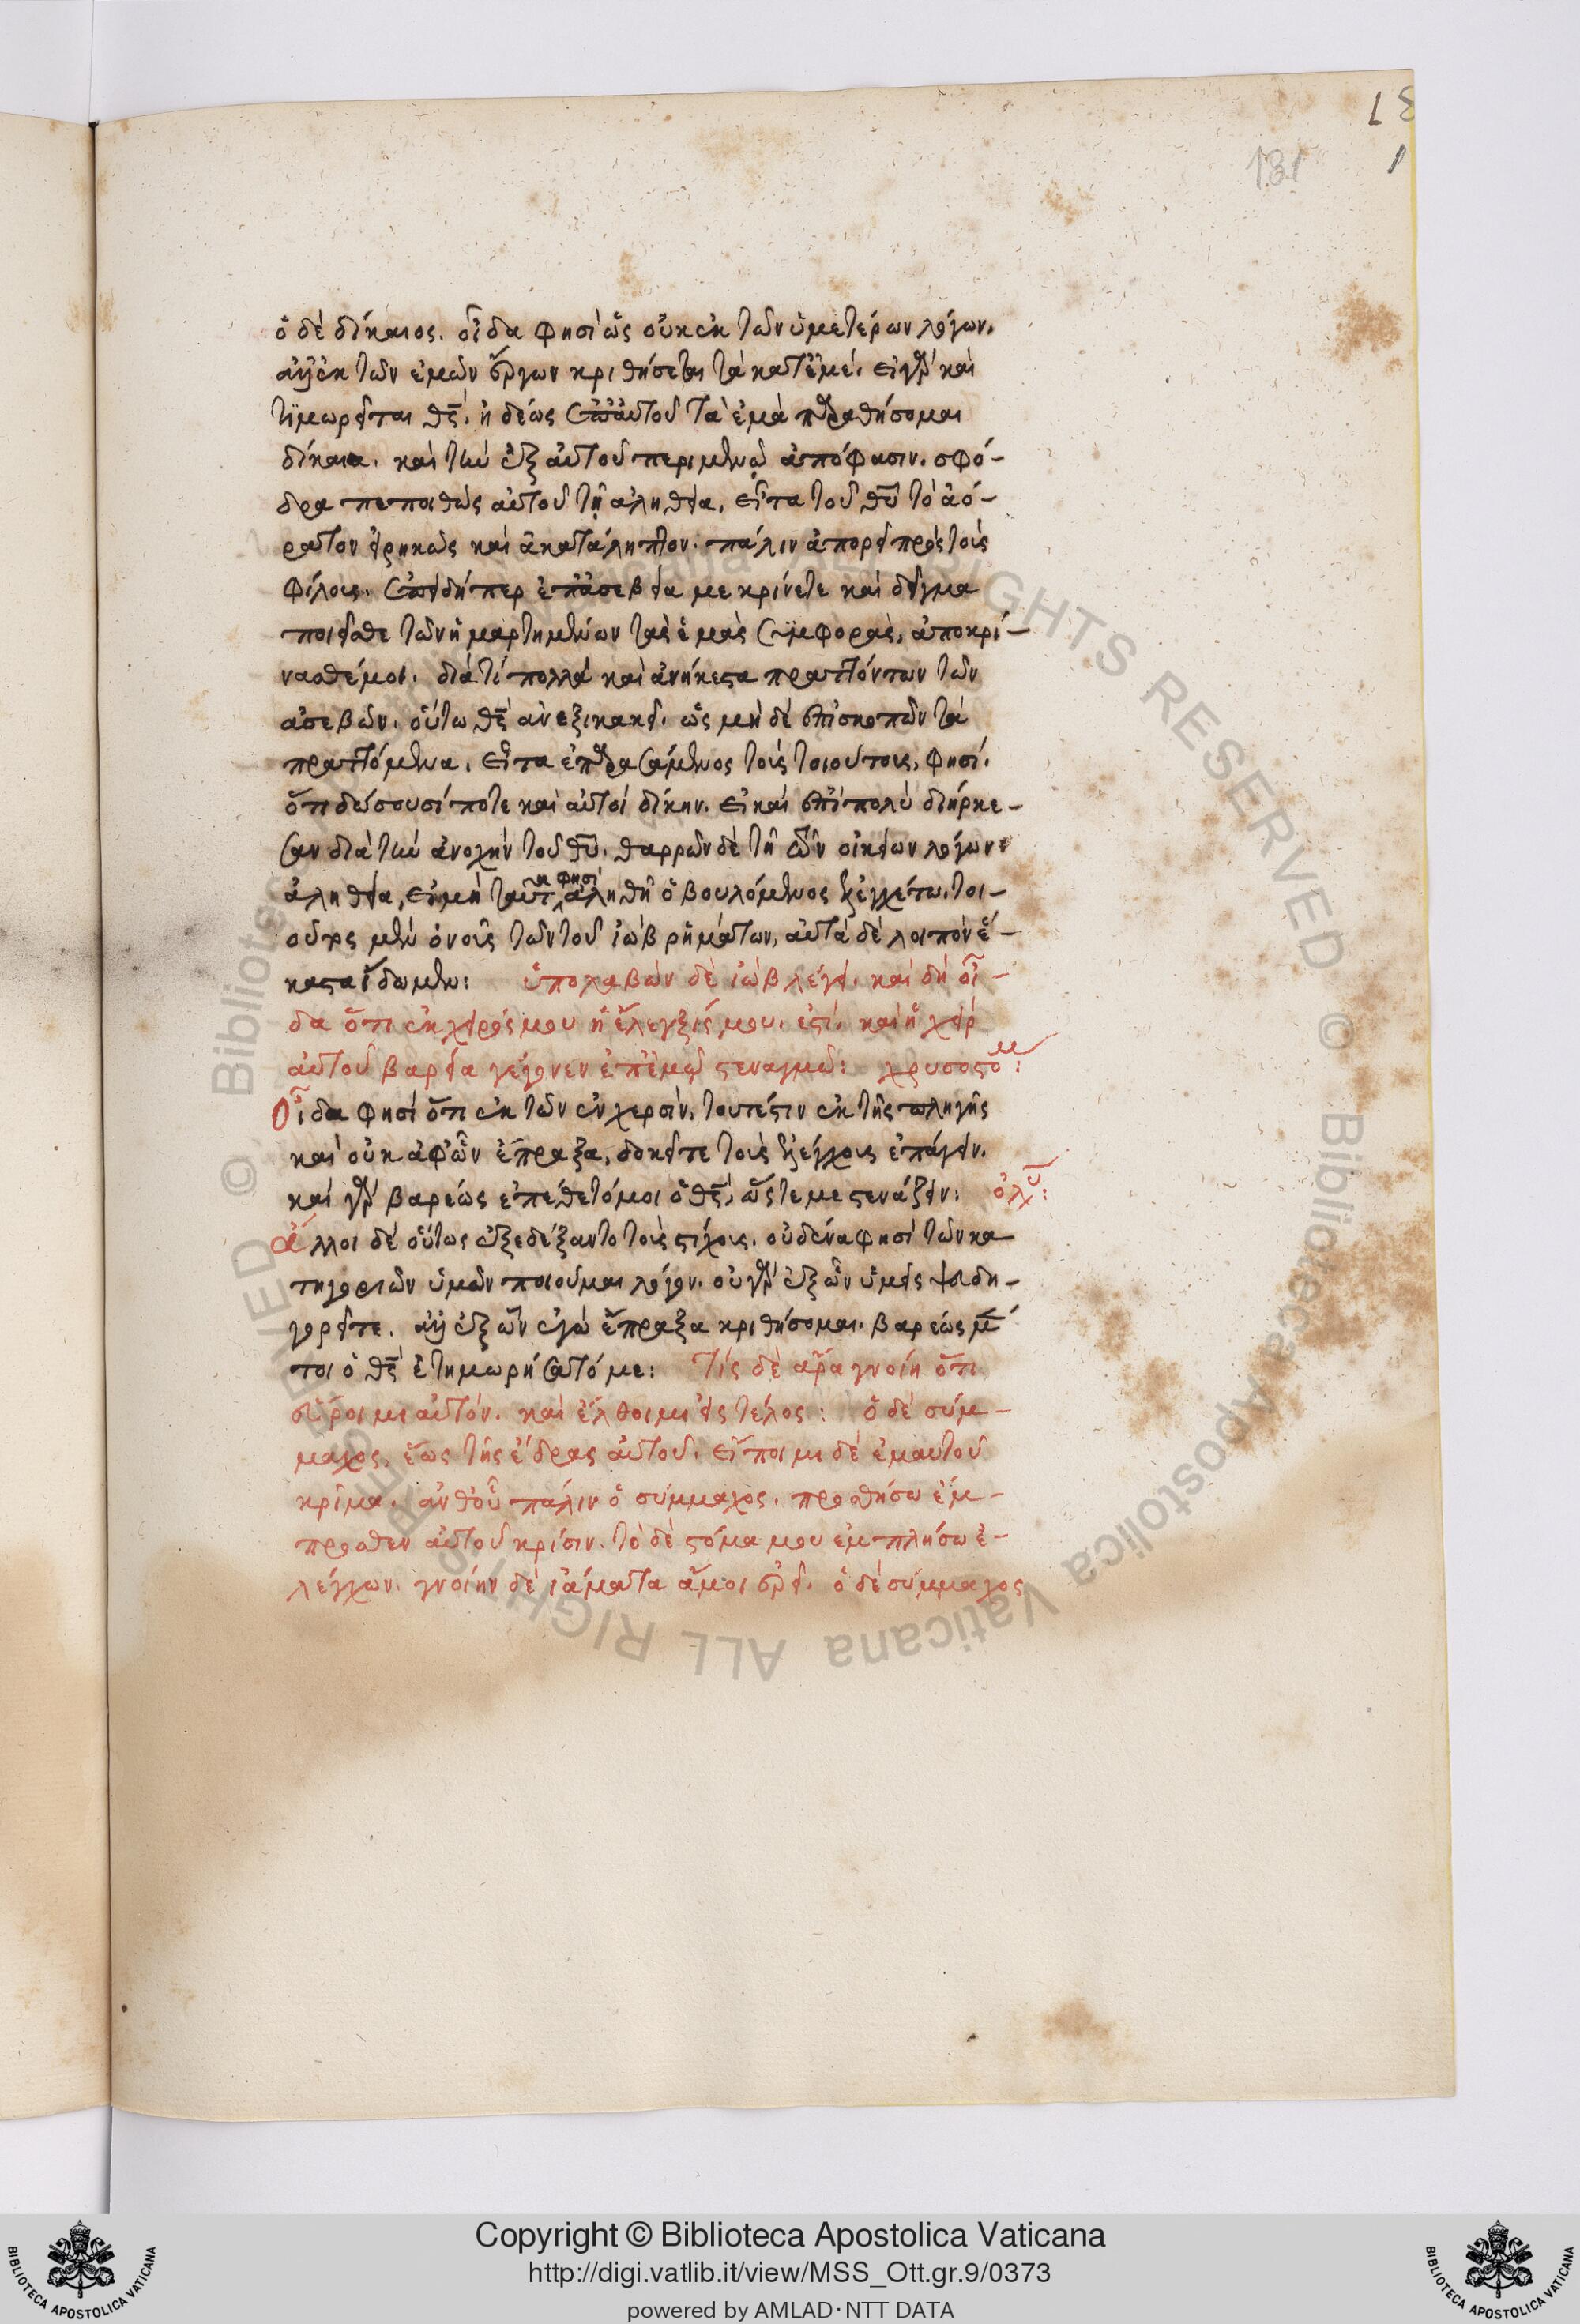 131
ὁ δὲ δίκαιος. οἶδα φησὶ ὡς οὐκ ἐκ τῶν ὑμετέρων λόγων,
ἀλλ' ἐκ τῶν ἐμῶν ἔργων κριθήσεται τὰ κατ' ἐμέ. εἰ γὰρ καὶ
τιμωρεῖται θς̅, ἡδέως ἐπ' αὐτοῦ τὰ ἐμὰ
δίκαια. καὶ τὴν ἐξ αὐτοῦ περιμένω ἀπόφασιν. σφό-
δρα πεποιθὼς αὐτοῦ τῇ ἀληθεία. εἶτα τοῦ θυ̅ τὸ ἀό-
ρατον εἰρηκὼς καὶ ἀκατάληπτον. πάλιν ἀπορεῖ πρὸς τοὺς
φίλους. ἐπειδήπερ ἐπ' ἀσεβεία με κρίνετε καὶ δεῖγμα
ποιεῖσθε τῶν ἡμαρτημένων τὰς ἐμὰς συμφορὰς, ἀποκρί-
νασθέ μοι. διὰ τί πολλὰ καὶ ἀνήκεστα πραττόντων τῶν
ἀσεβῶν. οὕτω θς̅ ἀνεξικακεῖ. ὡς μὴ δὲ ἐπισκοπῶν τὰ
πραττόμενα. εἶτα ἐπαρασάμενος τοῖς τοιούτοις, φησί.
ὅτι δώσουσί ποτε καὶ αὐτοὶ δίκην. εἰ καὶ ἐπὶ πολὺ διήρκε-
σαν διὰ τὴν ἀνοχὴν τοῦ θυ̅. θαρρῶν δὲ τῇ τῶν οἰκείων λόγων
ἀληθεία, εἰ μὴ ταῦτα φησὶ ἀληθῆ ὁ βουλόμενος ἐλεγχέτω. τοι-
οῦτος μὲν ὁ νοῦς τῶν τοῦ ἰὼβ ῥημάτων, αὐτὰ δὲ λοιπὸν ἕ-
καστα ἴδωμεν: ὑπολαβὼν δὲ ἰὼβ λέγει. καὶ δὴ οἶ-
δα ὅτι ἐκ χειρός μου ἡ ἔλεγξίς μου. ἐστί. καὶ ἡ χεὶρ
αὐτοῦ βαρεῖα γέγονεν ἐπ' ἐμῷ στεναγμῷ: χρυσοστομ:
Οἶδα φησὶ ὅτι ἐκ τῶν ἐν χερσὶν, τουτέστιν ἐκ τῆς πληγῆς
καὶ οὐκ ἀφ' ὧν ἔπραξα, δοκεῖτε τοὺς ἐλέγχους ἐπάγειν.
καὶ γὰρ βαρέως ἐπέθετό μοι ὁ θς̅, ὥστε με στενάζειν: ὀλυ:
ἄλλοι δὲ οὕτως ἐξεδέξαντο τοὺς στίχους. οὐδένα φησὶ τῶν κα
τηγοριῶν ὑμῶν ποιοῦμαι λόγον. οὐ γὰρ ἐξ ὧν ὑμεῖς ψευδη-
γορεῖτε. ἀλλ' ἐξ ὧν ἐγὼ ἔπραξα κριθήσομαι. βαρέως μέν
τοι ὁ θς̅ ἐτιμωρήσατό με: Τίς δὲ ἄρα γνοίη ὅτι
εὕροιμι αὐτόν. καὶ ἔλθοιμι εἰς τέλος: ὁ δὲ σύμ-
μαχος, ἕως τῆς ἕδρας αὐτοῦ. εἴποιμι δὲ ἐμαυτοῦ
κρῖμα. ἀνθ' οὗ πάλιν ὁ σύμμαχος. προθήσω ἔμ-
προσθεν αὐτοῦ κρίσιν. τὸ δὲ στόμα μου ἐμπλήσω ἐ-
λέγχων. γνοίην δὲ ἰάματα ἅ μοι ἐρεῖ. ὁ δὲ σύμμαχος
© Biblioteca Apostolica Vaticana ALL RIGHTS RESERVED
Copyright © Biblioteca Apostolica Vaticana
http://digi.vatlib.it/view/MSS_Ott.gr.9/0373
powered by AMLAD · NTT DATA
BIBLIOTECA APOSTOLICA VATICANA
BIBLIOTECA APOSTOLICA VATICANA